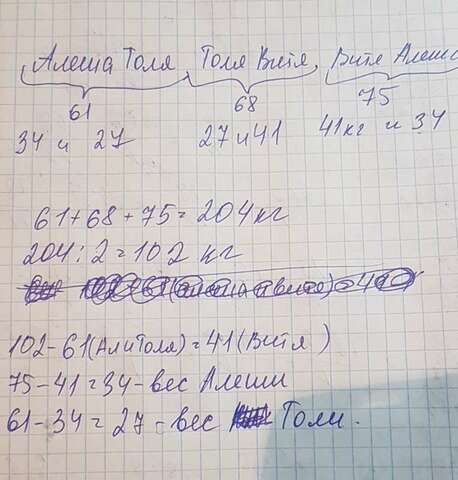 Алеша Толя, Толя Витя, Витя Алеши
61 68 75
34 и 27 27 и 41 41кг и 34
61+68+75=204кг
204:2=102 кг
102-61(АлиТоля)=41(Витя)
75-41=34-вес Алеши
61-34=27-вес Толи.